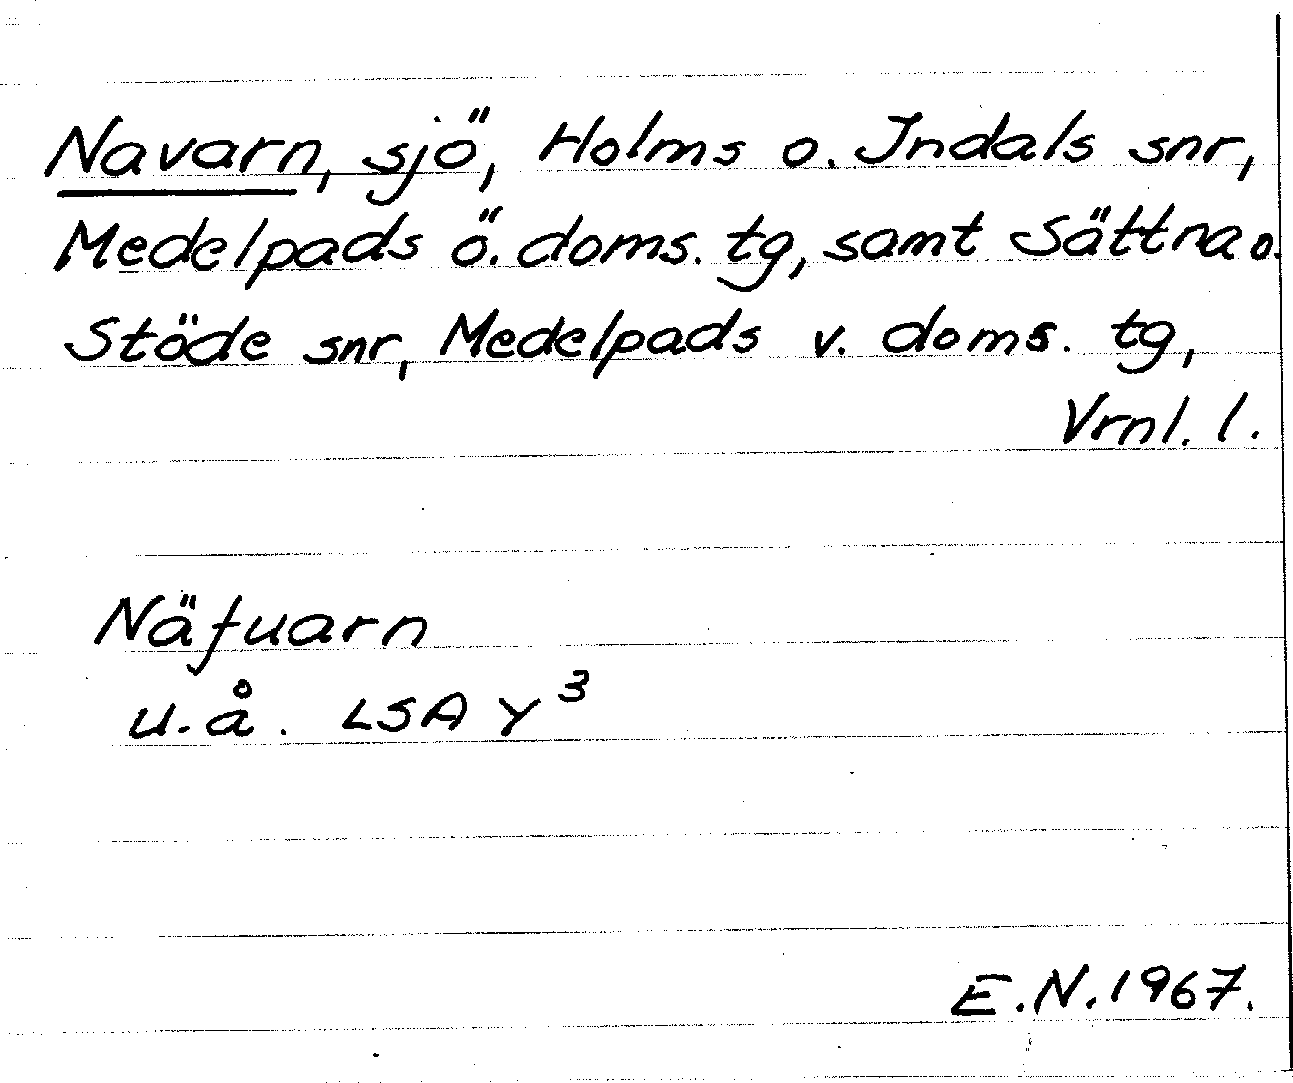 Navarn, sjö, Holms o. Indals snr,
Medelpads ö. doms. tg, samt Sättna o.
Stöde snr, Medelpads v. doms. tg,
Vrnl. l.
Näfuarn
u.å. LSA Y³
E.N. 1967.